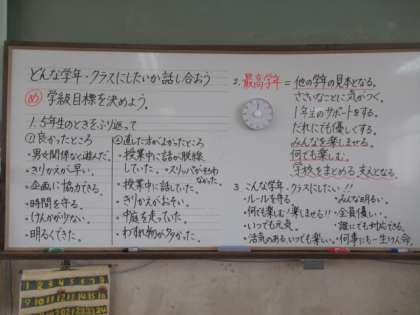 どんな学年・クラスにしたいか話し合おう
め 学級目標を決めよう。
1. 5年生のときをふり返って
①良かったところ
・男女関係なく遊んだ。
・きりかえが早い。
・企画に協力できる。
・時間を守る。
・けんかが少ない。
・明るくできた。
②直した方がよかったところ
・授業中に話が脱線
していた。
・スリッパがそろわ
なかった。
・授業中に話していた。
・きりかえがおそい。
・中庭を走っていた。
・わすれ物が多かった。
2. 最高学年=他の学年の見本となる。
ささいなことに気がつく。
1年生のサポートをする。
だれにでも優しくする。
みんなを楽しませる。
何でも楽しむ。
学校をまとめる主人となる。
3. こんな学年・クラスにしたい!!
・ルールを守る。
・みんな明るい。
・何でも楽しむ!楽しませる!!
・全員優しい。
・いつも元気
・誰にでも対応できる。
・活気のある いつでも楽しい。
・何事にも一生けん命。